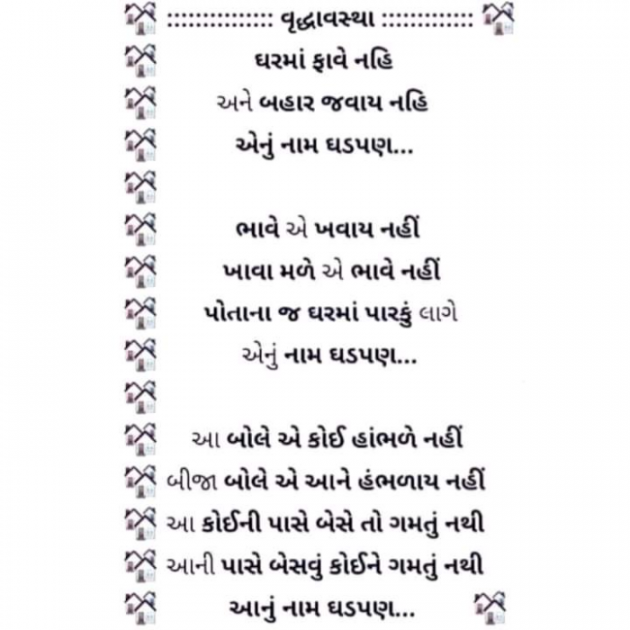 ::::::::::::::: વૃદ્ધાવસ્થા :::::::::::::
ઘરમાં ફાવે નહિ
અને બહાર જવાય નહિ
એનું નામ ઘડપણ...
ભાવે એ ખવાય નહીં
ખાવા મળે એ ભાવે નહીં
પોતાના જ ઘરમાં પારકું લાગે
એનું નામ ઘડપણ...
આ બોલે એ કોઈ હાંભળે નહીં
બીજા બોલે એ આને હંભળાય નહીં
આ કોઈની પાસે બેસે તો ગમતું નથી
આની પાસે બેસવું કોઈને ગમતું નથી
આનું નામ ઘડપણ...